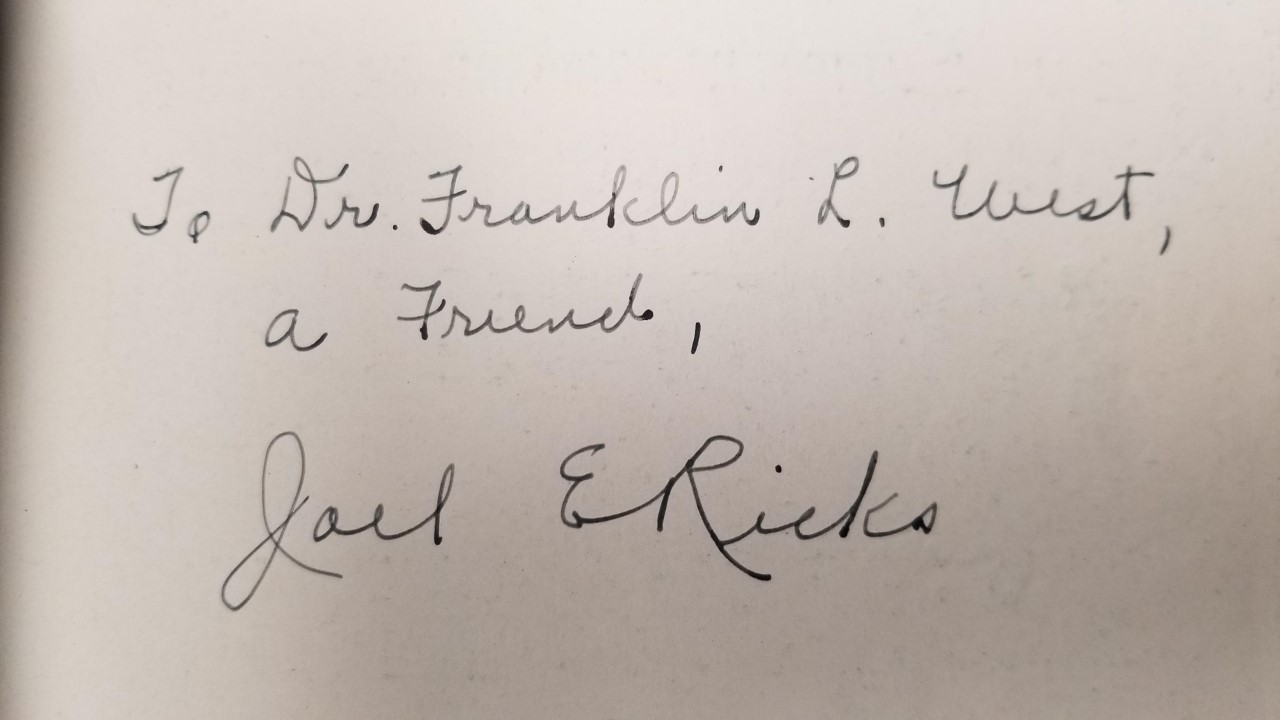 To Dr. Franklin L. West,
a Friend,
Joel E Ricks